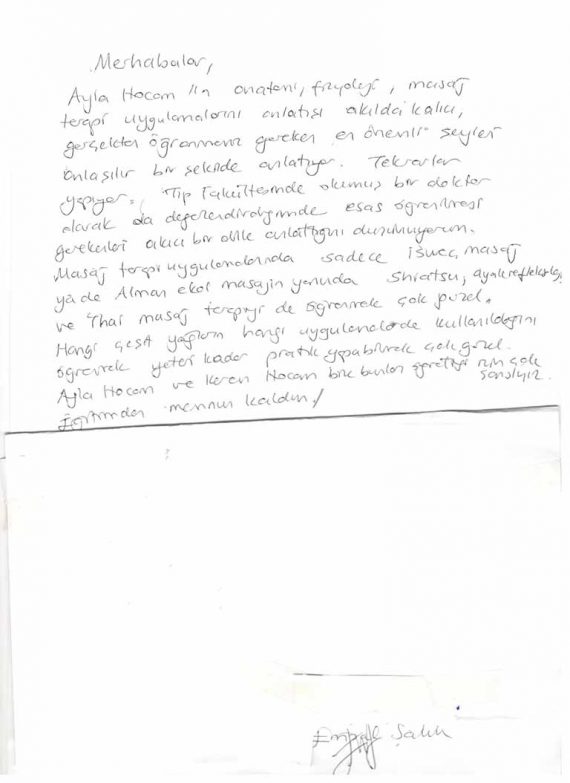 Merhabalar,
Ayla Hocam 'ın anatomi, fizyoloji, masaj
terapi uygulamalarını anlatışı akılda kalıcı,
gerçekten öğrenmemiz gereken en önemli şeyleri
anlaşılır bir şekilde anlatıyor. Tekrarlar
yapıyor. Tıp Fakültesinde okumuş bir doktor
olarak da değerlendirdiğimde esas öğrenilmesi
gerekenleri akıcı bir dille anlattığını düşünüyorum.
Masaj terapi uygulamalarında sadece İsveç masajı
ya da Alman ekol masajın yanında shiatsu, ayak refleksoloji
ve Thai masaj terapiyi de öğrenmek çok güzel.
Hangi çeşit yağların hangi uygulamalarda kullanıldığını
öğrenmek yeteri kadar pratik yapabilmek çok güzel.
Ayla Hocam ve Keren Hocam bize bunları öğrettiği için çok
şanslıyız.
Eğitimden memnun kaldım
Şalk